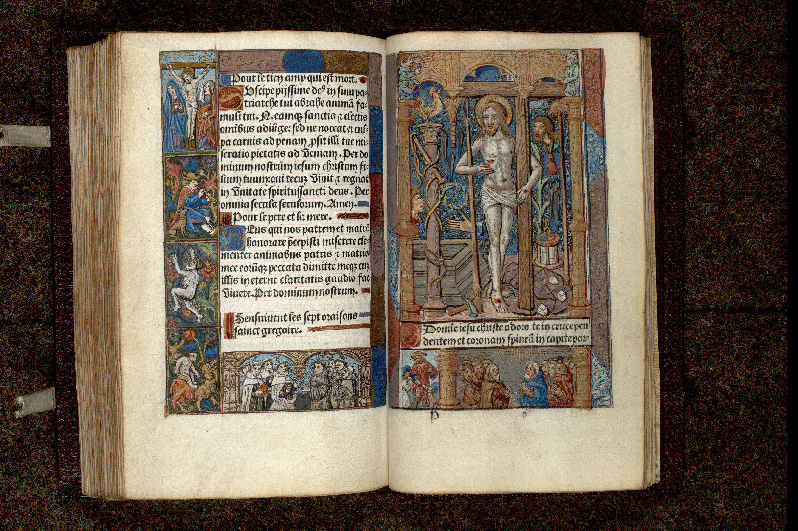 Pour le tien amy qui est mort.
Uscipe pijssime deꝰ in sinu pa-
triarche tui abrahe animā fa-
muli tui. N. eamqꝫ sanctis ⁊ electis
omnibus adiūge: sed ne noceat ei cul-
pa carnis ad penam ꝓsit illi tue mi-
seratio pietatis ad Veniam. Per do
minum nostrum iesum christum fi-
lium tuum: qui tecū Viuit ⁊ regnat
in Vnitate spiritussancti deus. Per
omnia secula seculorum. Amen.
Pour se pere et sa mere.
Eus qui nos patrem et matrē
honorare p̄cepisti miserere cle-
menter animabus patris ⁊ matris
mee eorūqꝫ peccata dimitte meqꝫ cū
illis in eterne claritatis gaudio fac
Viuere. Per dominum nostrum.
Sensuiuent les sept oraisons
sainct gregoire.
Domie iesu christe adoro te in cruce pen
dentem et coronam spineā in capite por-